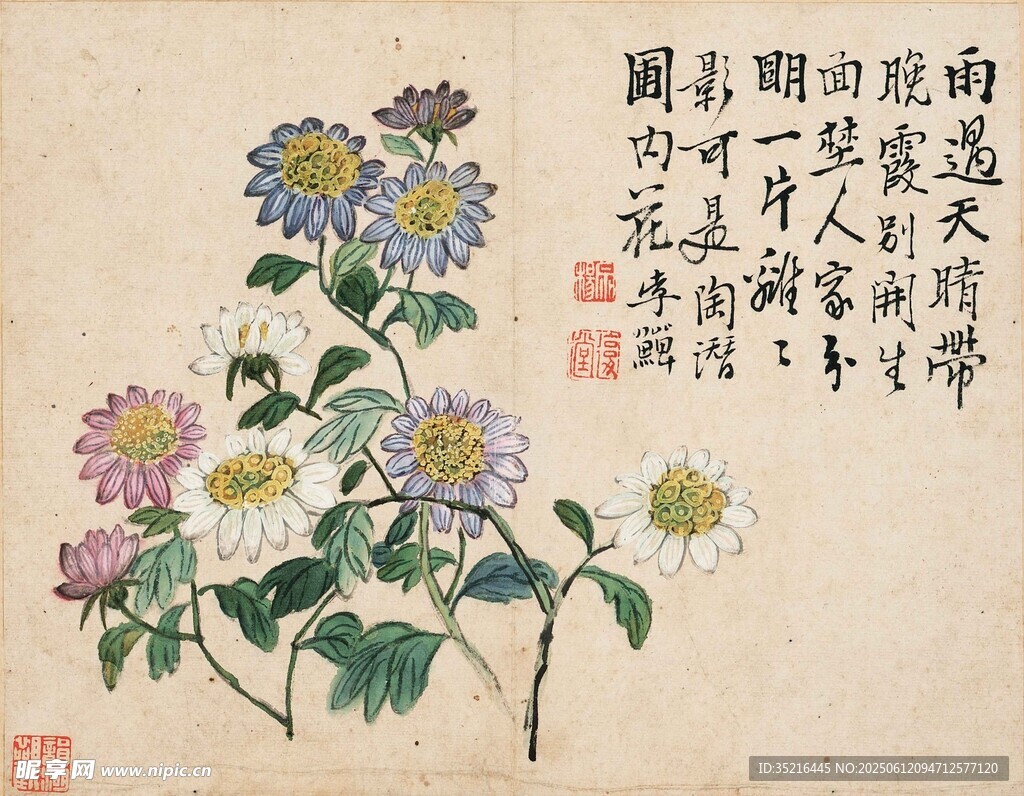 雨過天晴帶
晚霞別開生
面埜人家分
朙一片離〻
影可是陶潛
圃内花李鱓
昵享网 www.nipic.cn
ID:35216445 NO:20250612094712577120